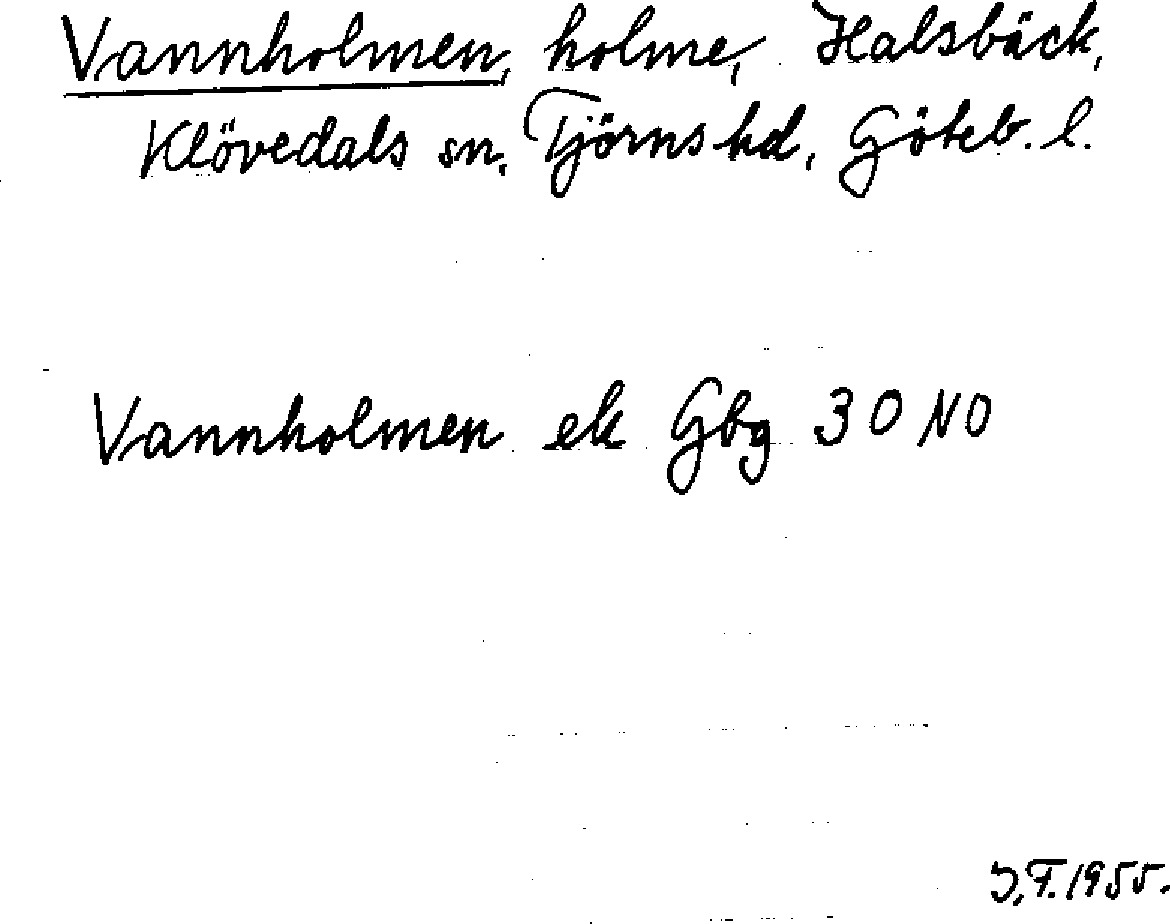 Vannholmen, holme, Halsbäck,
Klövedals sn, Tjörns hd, Göteb. l.
Vannholmen ek Gbg 30 NO
J.F. 1955.